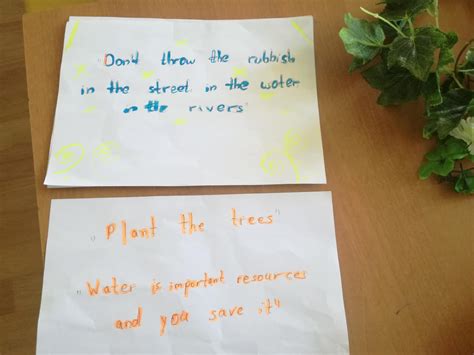 "Don't throw the rubbish
in the street in the water
in the rivers"
"Plant the trees"
"Water is important resources
and you save it"